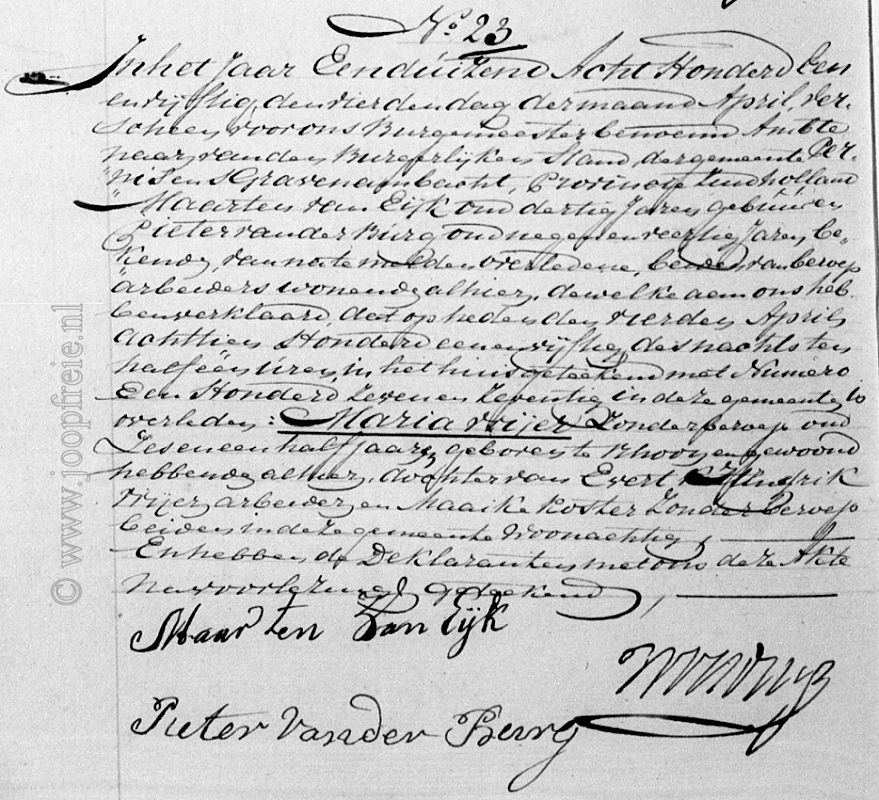 No. 23
In het Jaar Eenduizend Acht Honderd Een
en vijftig, den vierden dag der maand April, ver-
scheen voor ons Burgemeester benoemd Ambte
naar van den Burgerlijken Stand, der gemeente Per-
"nis en 's Gravenambacht, Provincie Zuidholland
Maarten van Eijk oud dertig Jaren gebuur en
Pieter van der Burg oud negen en veertig Jaren, be-
"kende, van na te melden overledene, beiden van beroep
"arbeiders wonende alhier, dewelke aan ons heb-
ben verklaard dat op heden den vierden April
achttien Honderd een en vijftig des nachts ten
half één uren, in het huis geteekend met Numero
Een Honderd Zeven en Zeventig in deze gemeente is
overleden: Maria vrijer Zonder beroep oud
Zes en een half jaar, geboren te Rhoon en gewoond
hebbende alhier, dochter van Evert Hendrik
vrijer, arbeider, en Maaike Koster Zonder Beroep
beiden in deze gemeente Woonachtig,
En hebben de Deklaranten met ons deze Akte
na voorlezing geteekend,
Maarten Van Eijk
Pieter Vander Burg
© www.joopfreie.nl